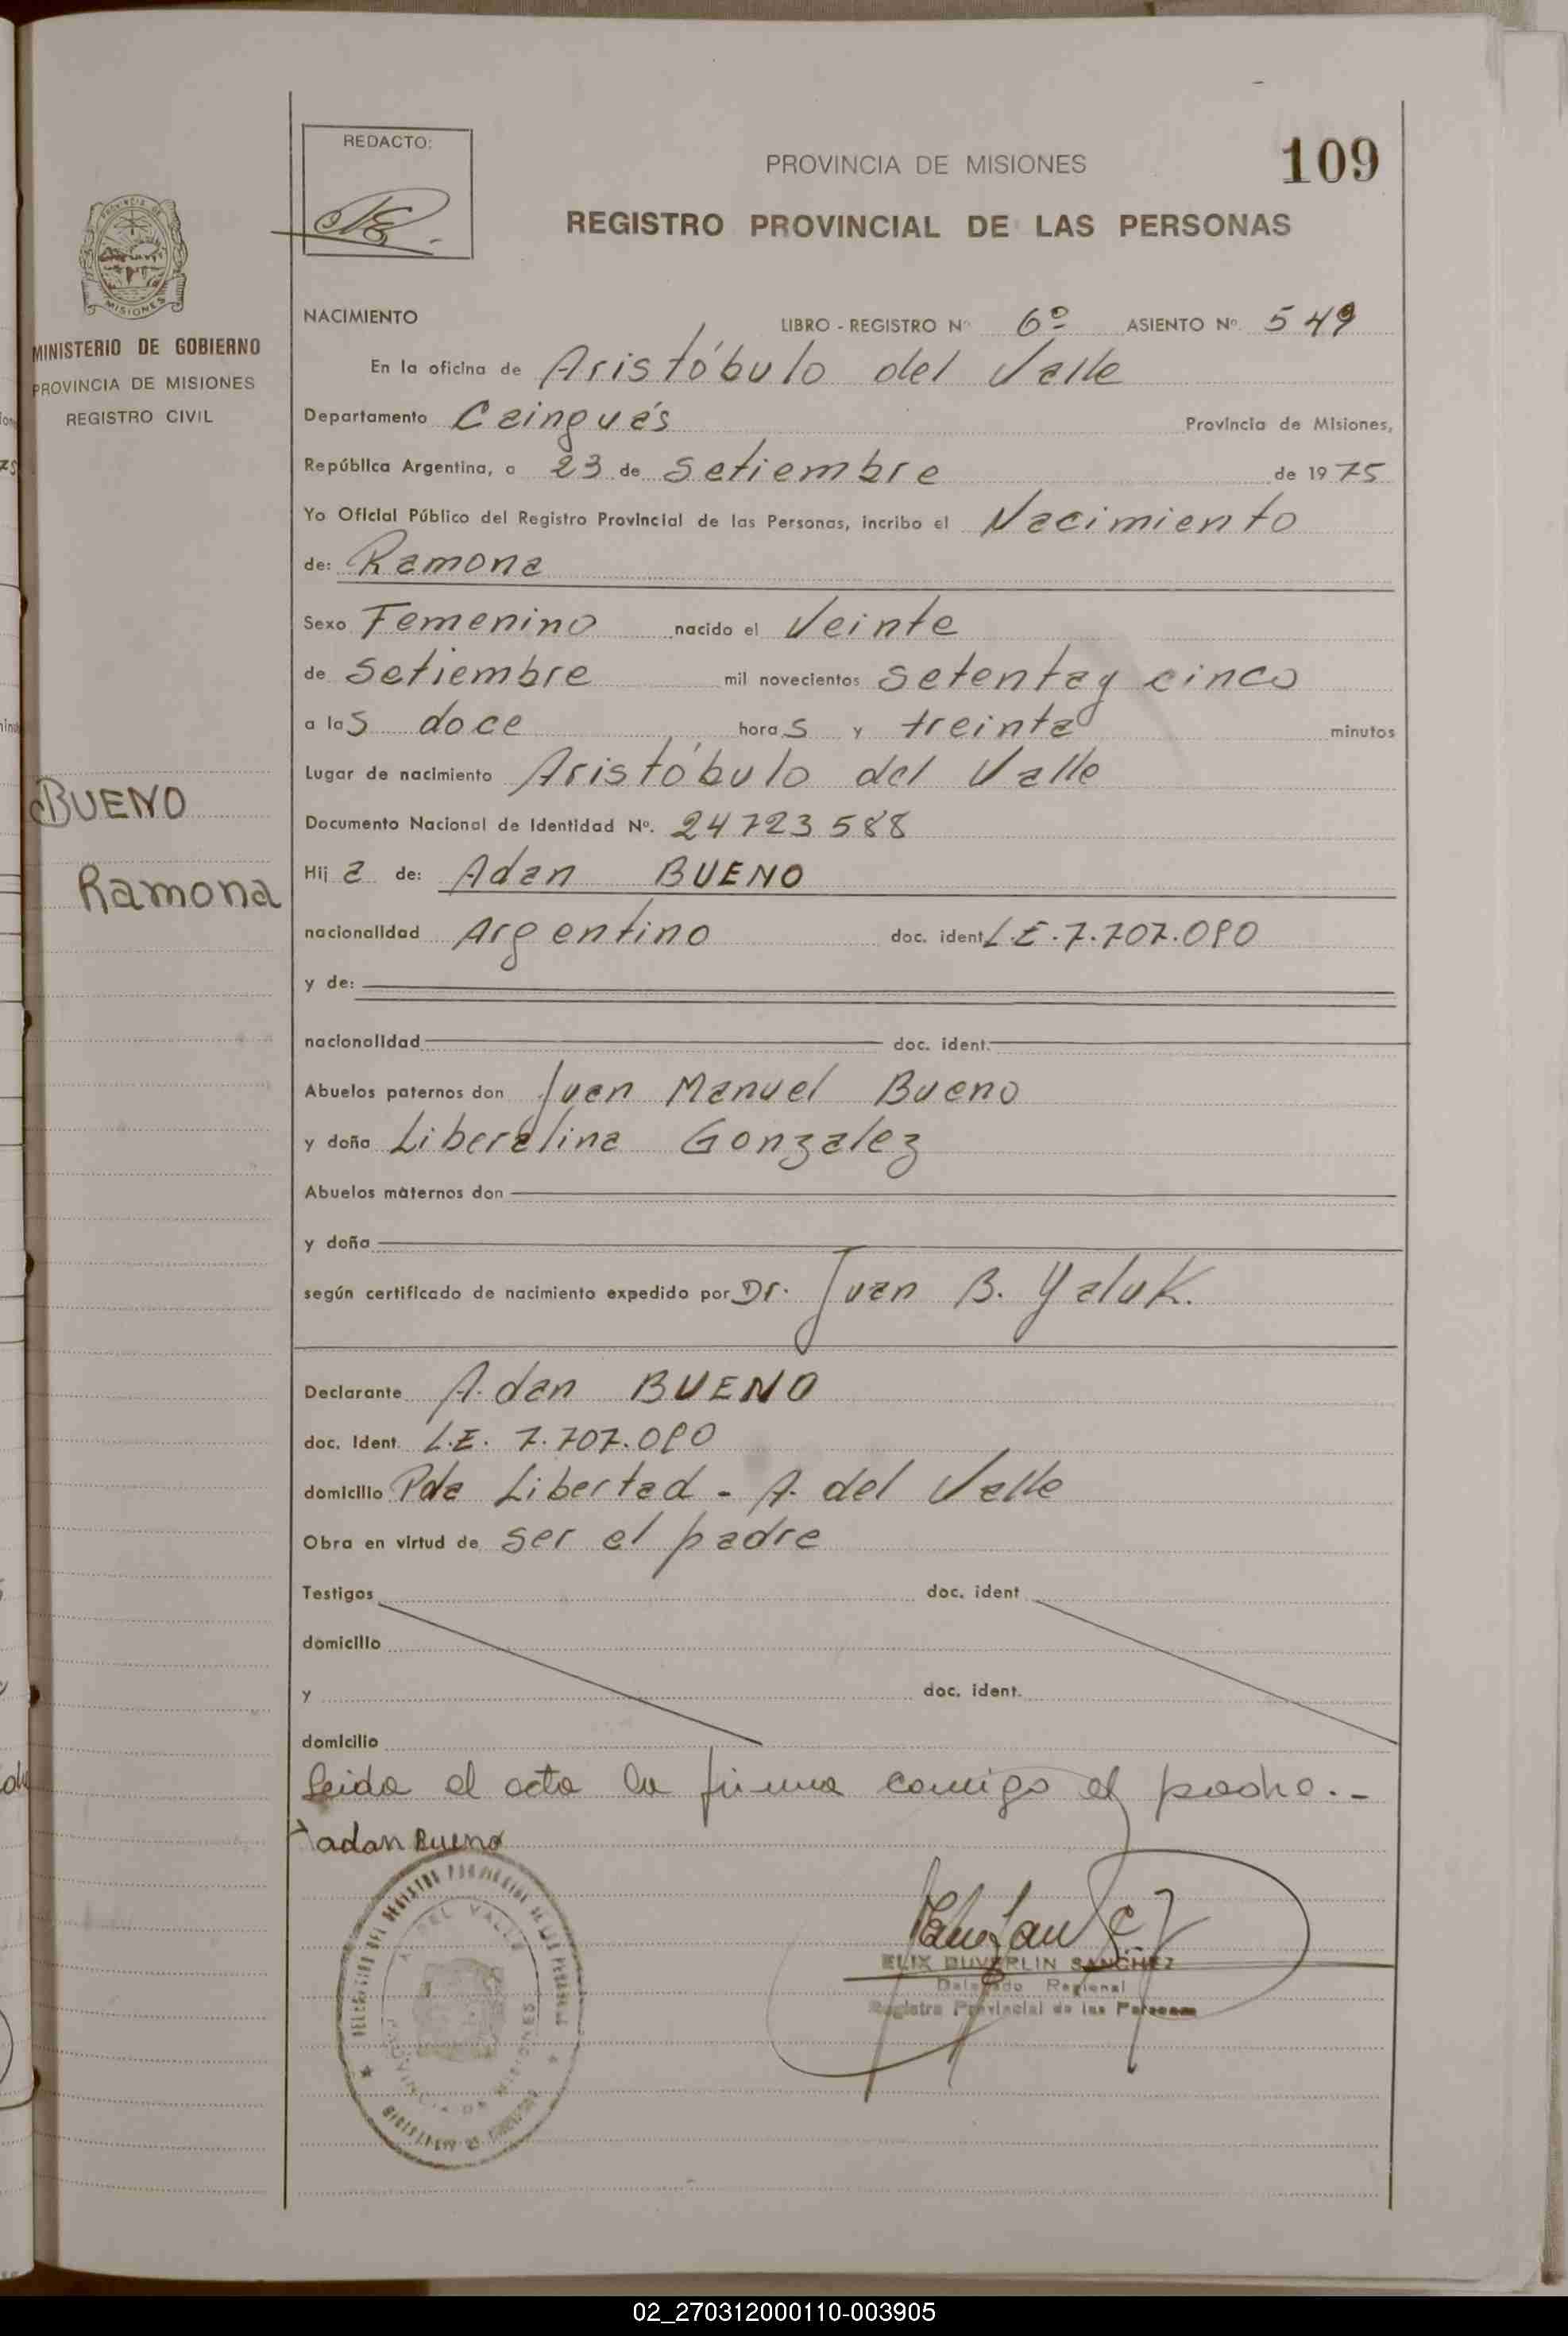 REDACTO:
PROVINCIA DE MISIONES
109
REGISTRO PROVINCIAL DE LAS PERSONAS
PROVINCIA DE
MISIONES
MINISTERIO DE GOBIERNO
PROVINCIA DE MISIONES
REGISTRO CIVIL
NACIMIENTO LIBRO - REGISTRO Nº 6º ASIENTO Nº 549
En la oficina de Aristóbulo del Valle
Departamento Cainguás Provincia de Misiones,
República Argentina, a 23 de Setiembre de 1975
Yo Oficial Público del Registro Provincial de las Personas, incribo el Nacimiento
de: Ramona
Sexo Femenino nacido el Veinte
de Setiembre mil novecientos setenta y cinco
a las doce horas y treinta minutos
Lugar de nacimiento Aristóbulo del Valle
BUENO
Ramona
Documento Nacional de Identidad Nº. 24723588
Hija de: Adan BUENO
nacionalidad Argentino doc. ident L.E. 7.707.080
y de:
nacionalidad doc. ident.
Abuelos paternos don Juan Manuel Bueno
y doña Liberalina Gonzalez
Abuelos maternos don
y doña
según certificado de nacimiento expedido por Dr. Juan B. Yaluk.
Declarante Adan BUENO
doc. Ident. L.E. 7.707.080
domicilio Pda Libertad - A. del Valle
Obra en virtud de ser el padre
Testigos doc. ident
domicilio
y doc. ident.
domicilio
Leida el acta la firma conmigo el padre.-
adan Bueno
DEL VALLE
PROVINCIA DE MISIONES
ELIX DUVERLIN SANCHEZ
Delegado Regional
Registro Provincial de las Personas
02_270312000110-003905